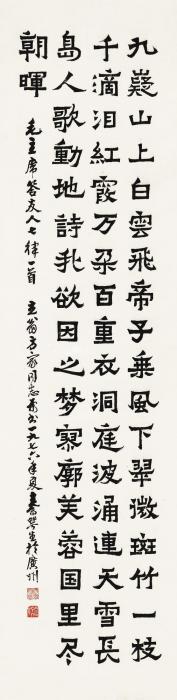 九嶷山上白雲飛帝子乘風下翠微斑竹一枝
千滴泪紅霞万朵百重衣洞庭波涌連天雪長
島人歌動地詩我欲因之梦寥廓芙蓉国里尽
朝暉
毛主席答友人七律一首 方家同志 一九七六年夏 咢生於廣州